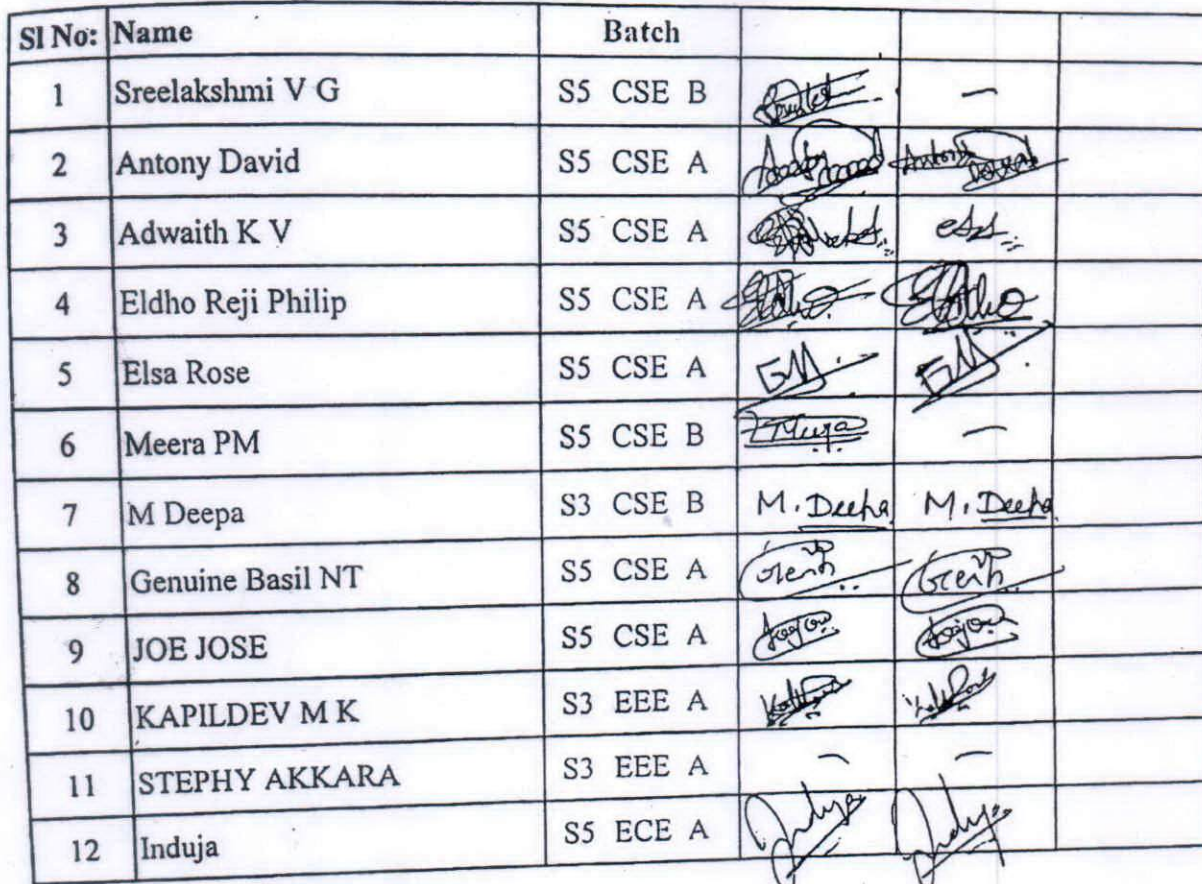 Sl No: Name Batch
1 Sreelakshmi V G S5 CSE B –
2 Antony David S5 CSE A
3 Adwaith K V S5 CSE A
4 Eldho Reji Philip S5 CSE A Eldho Eldho
5 Elsa Rose S5 CSE A
6 Meera PM S5 CSE B –
7 M Deepa S3 CSE B M. Deepa M. Deepa
8 Genuine Basil NT S5 CSE A
9 JOE JOSE S5 CSE A
10 KAPILDEV M K S3 EEE A
11 STEPHY AKKARA S3 EEE A – –
12 Induja S5 ECE A Induja Induja